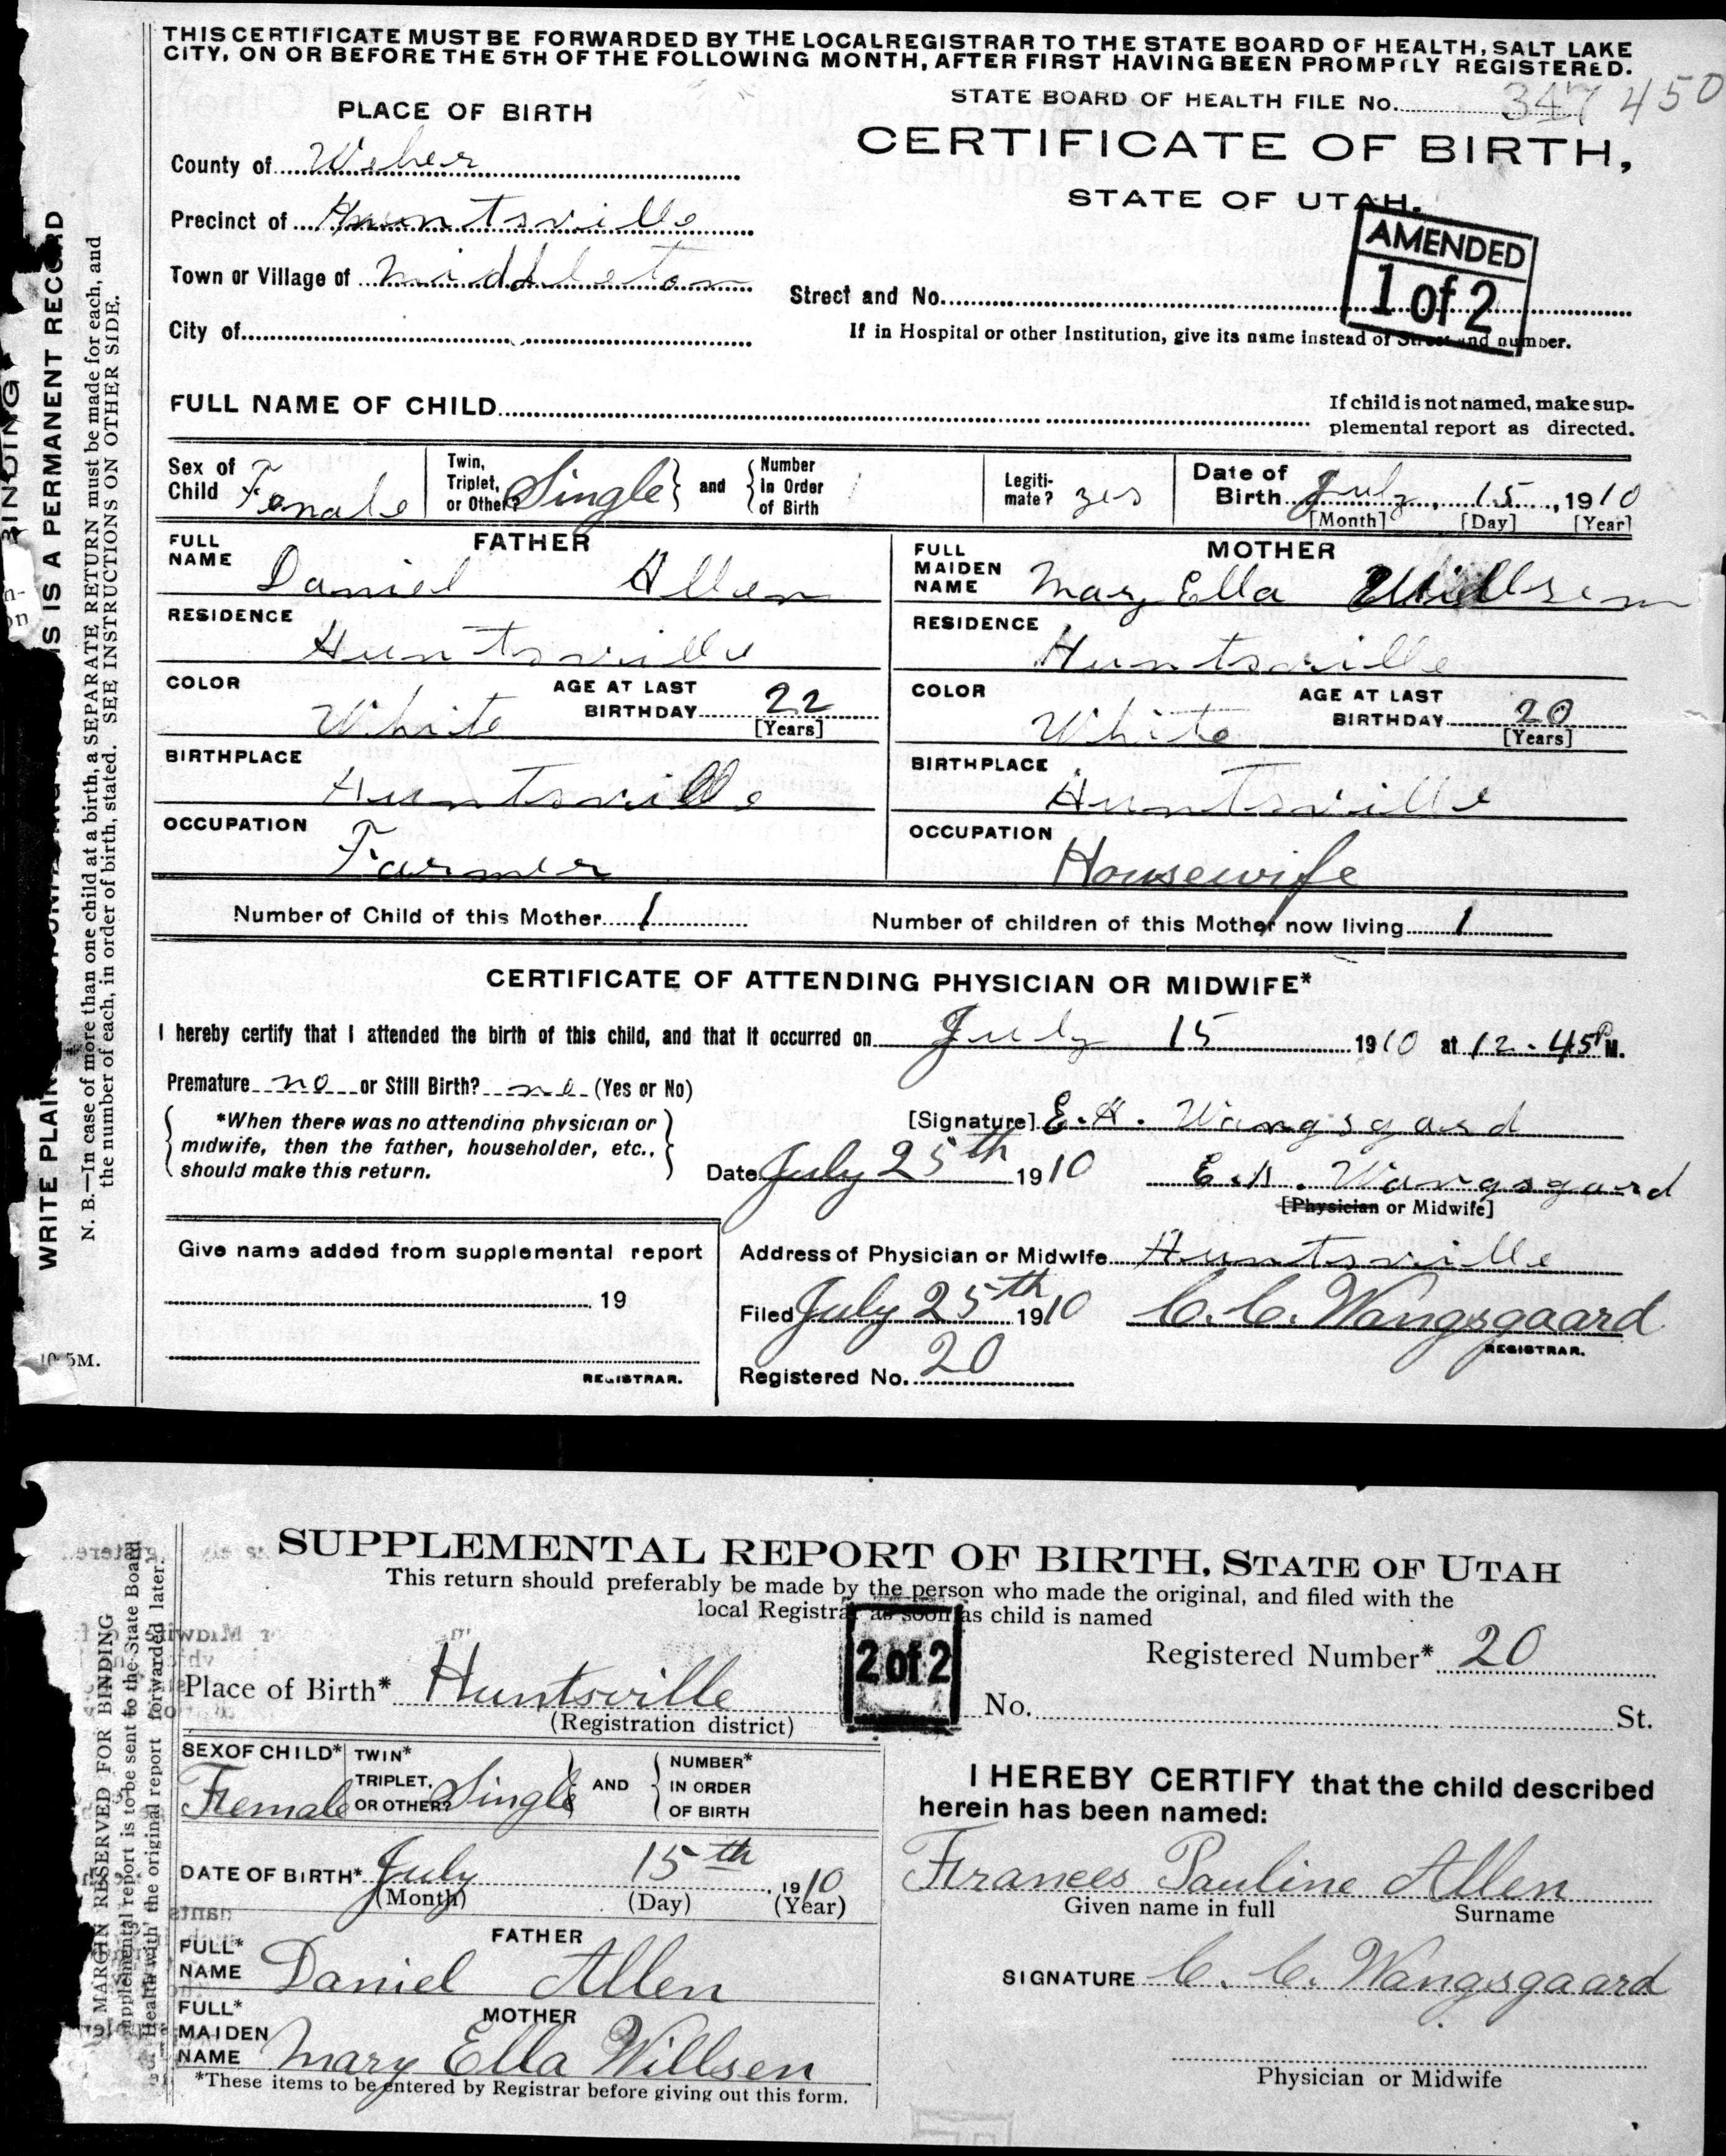 THIS CERTIFICATE MUST BE FORWARDED BY THE LOCAL REGISTRAR TO THE STATE BOARD OF HEALTH, SALT LAKE
CITY, ON OR BEFORE THE 5TH OF THE FOLLOWING MONTH, AFTER FIRST HAVING BEEN PROMPTLY REGISTERED.
STATE BOARD OF HEALTH FILE No. 347 450
PLACE OF BIRTH
CERTIFICATE OF BIRTH,
County of Weber
STATE OF UTAH.
Precinct of Huntsville
AMENDED
1 of 2
Town or Village of Middleton
Street and No.
City of
If in Hospital or other Institution, give its name instead of Street and number.
FULL NAME OF CHILD
If child is not named, make sup-
plemental report as directed.
Sex of Child Female
Twin, Triplet, or Other? Single and Number In Order of Birth
Legiti-mate? yes
Date of Birth July, 15, 1910
[Month] [Day] [Year]
FATHER
FULL NAME Daniel Allen
MOTHER
FULL MAIDEN NAME Mary Ella Willsen
RESIDENCE Huntsville
RESIDENCE Huntsville
COLOR White AGE AT LAST BIRTHDAY 22 [Years]
COLOR White AGE AT LAST BIRTHDAY 20 [Years]
BIRTHPLACE Huntsville
BIRTHPLACE Huntsville
OCCUPATION Farmer
OCCUPATION Housewife
Number of Child of this Mother 1 Number of children of this Mother now living 1
CERTIFICATE OF ATTENDING PHYSICIAN OR MIDWIFE*
I hereby certify that I attended the birth of this child, and that it occurred on July 15 1910 at 12.45 P M.
Premature no or Still Birth? no (Yes or No)
*When there was no attending physician or
midwife, then the father, householder, etc.,
should make this return.
[Signature] E. H. Wangsgard
Date July 25th 1910 E. H. Wangsgaard
[Physician or Midwife]
Give name added from supplemental report
19
REGISTRAR.
Address of Physician or Midwife Huntsville
Filed July 25th 1910 C. C. Wangsgaard
REGISTRAR.
Registered No. 20
BINDING
WRITE PLAIN IS IS A PERMANENT RECORD
N. B.—In case of more than one child at a birth, a SEPARATE RETURN must be made for each, and
the number of each, in order of birth, stated. SEE INSTRUCTIONS ON OTHER SIDE.
10 5M.
SUPPLEMENTAL REPORT OF BIRTH, STATE OF UTAH
This return should preferably be made by the person who made the original, and filed with the
local Registrar as soon as child is named
2 of 2
Registered Number* 20
Place of Birth* Huntsville
(Registration district)
No. St.
SEX OF CHILD* Female
TWIN* TRIPLET, OR OTHER? Single AND NUMBER* IN ORDER OF BIRTH
DATE OF BIRTH* July 15th, 1910
(Month) (Day) (Year)
FATHER
FULL* NAME Daniel Allen
MOTHER
FULL* MAIDEN NAME Mary Ella Willsen
*These items to be entered by Registrar before giving out this form.
I HEREBY CERTIFY that the child described
herein has been named:
Frances Pauline Allen
Given name in full Surname
SIGNATURE C. C. Wangsgaard
Physician or Midwife
MARGIN RESERVED FOR BINDING
supplemental report is to be sent to the State Board
Health with the original report forwarded later.